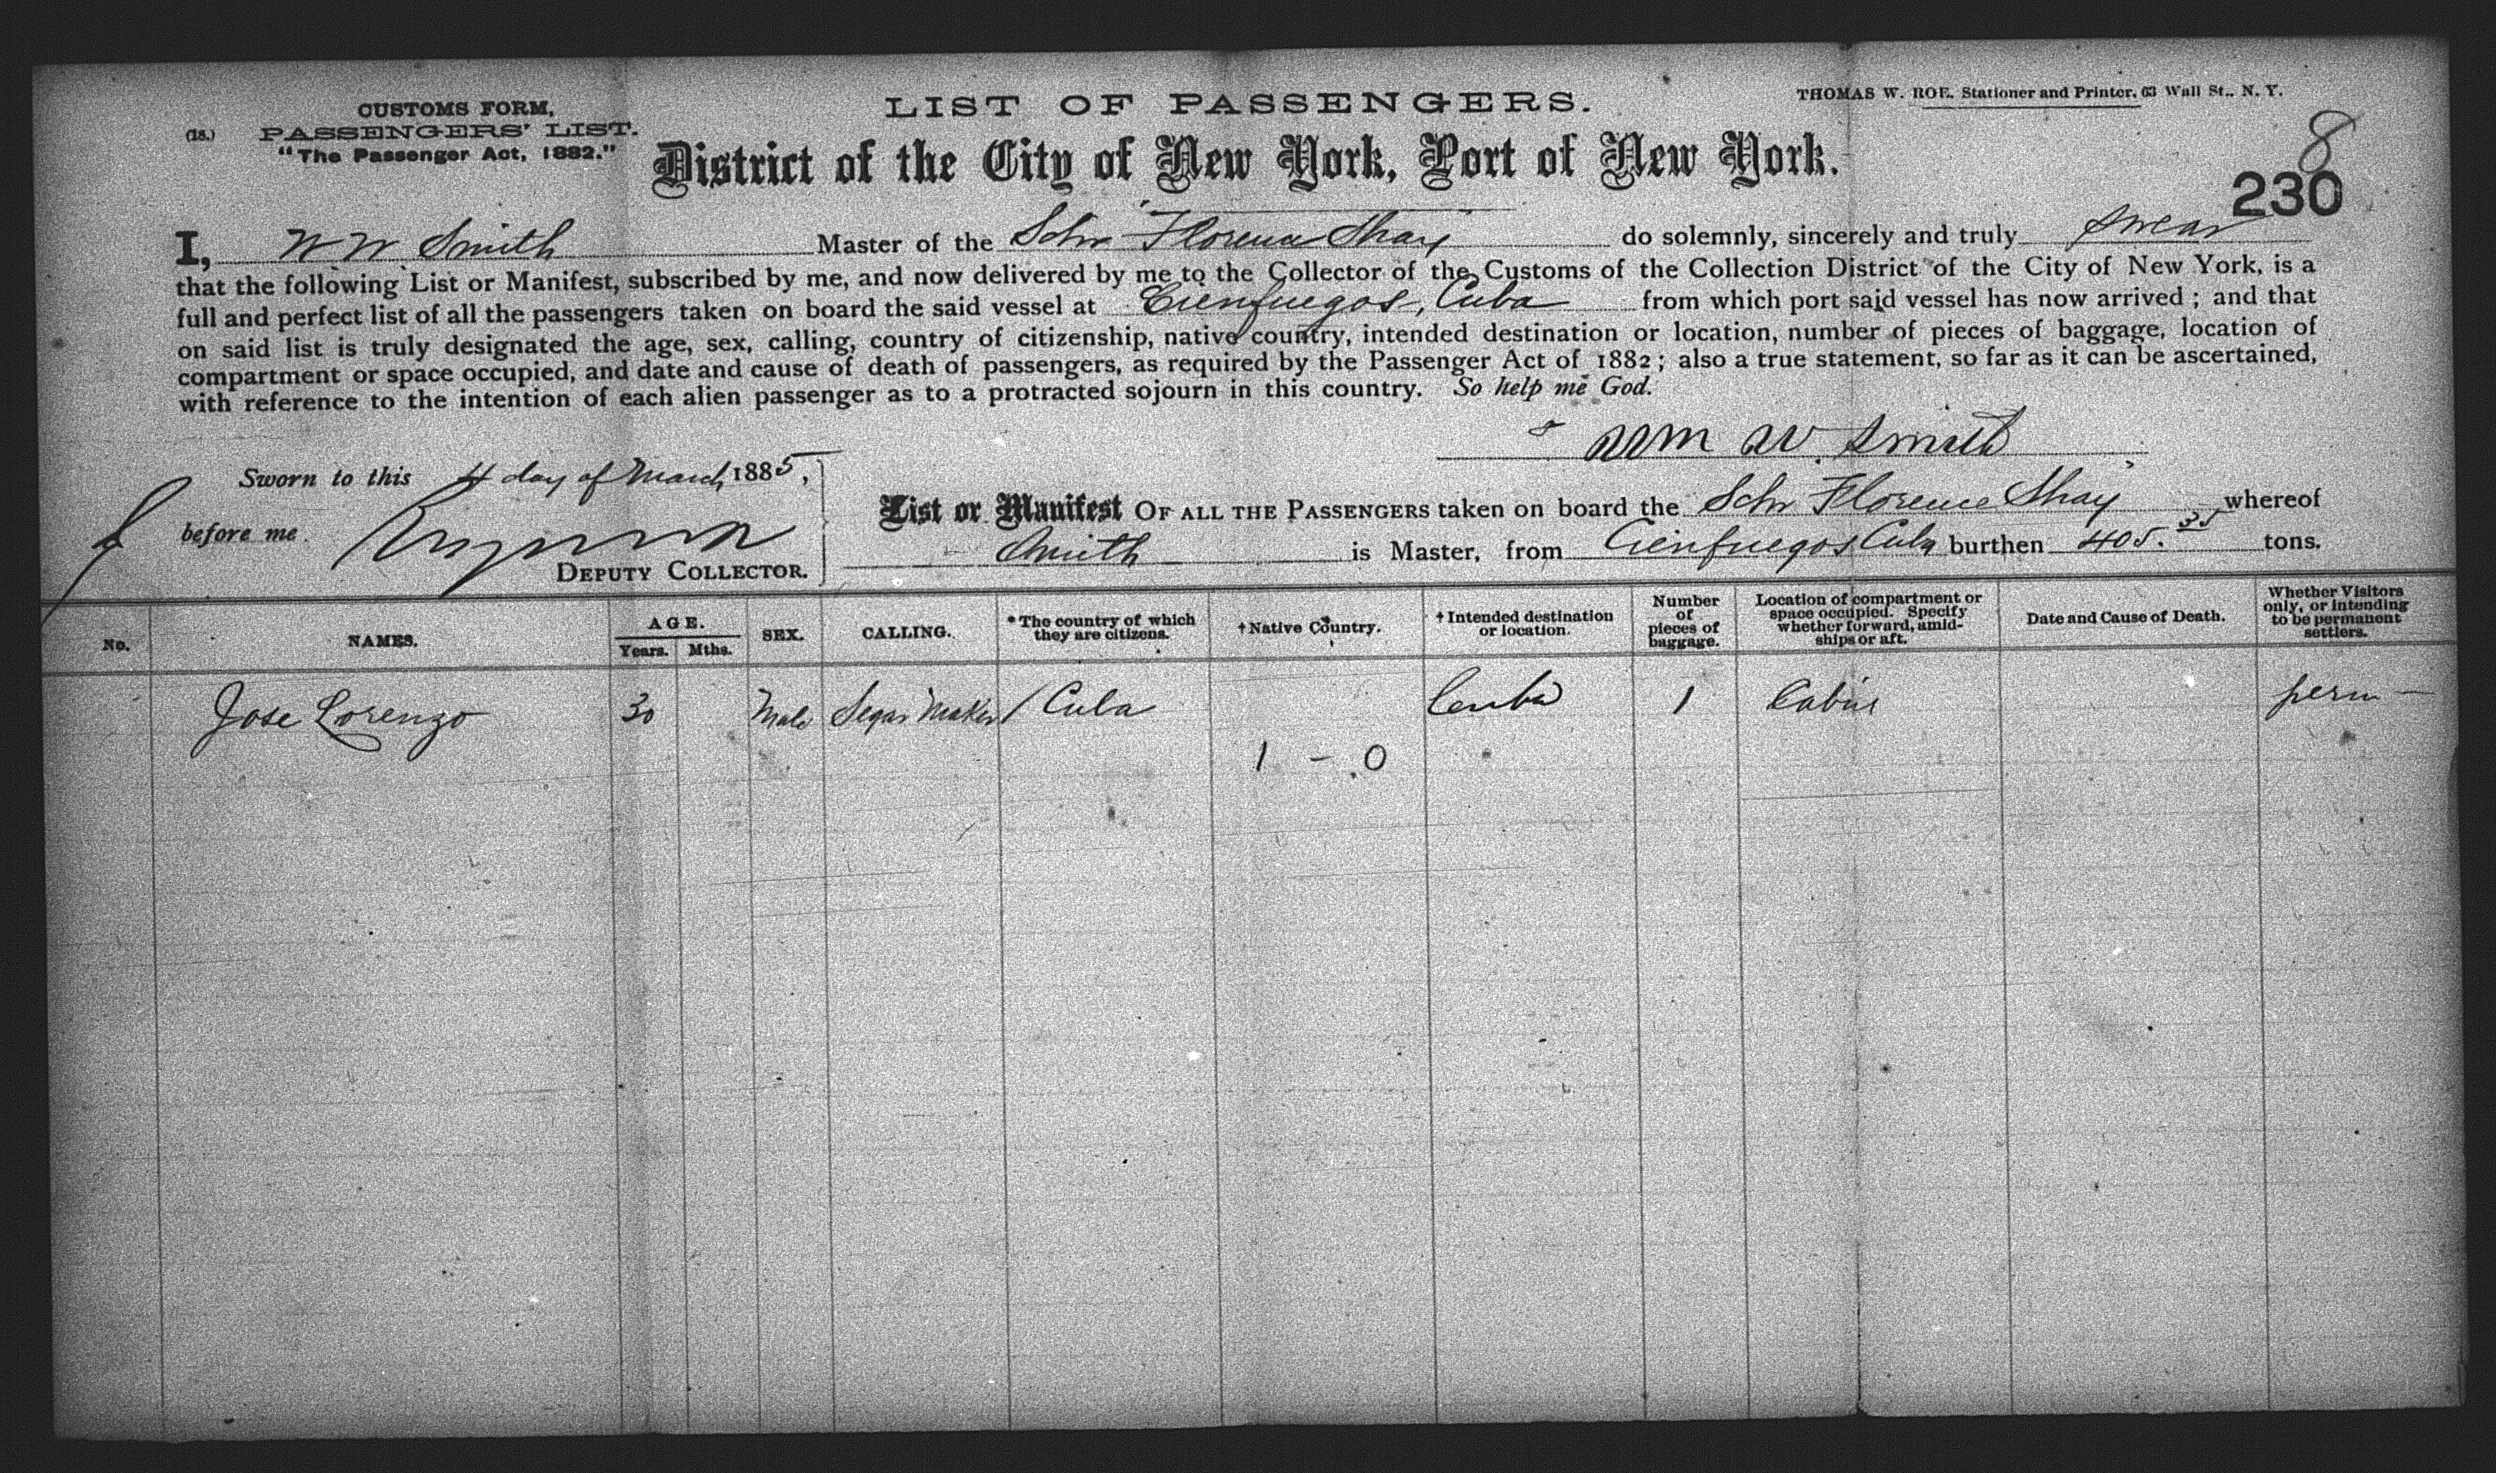 CUSTOMS FORM,
(18.) PASSENGERS' LIST.
"The Passenger Act, 1882."
LIST OF PASSENGERS.
THOMAS W. ROE. Stationer and Printer, 63 Wall St., N. Y.
District of the City of New York, Port of New York.
8
230
I, W W Smith Master of the Schr Florence Shay do solemnly, sincerely and truly swear
that the following List or Manifest, subscribed by me, and now delivered by me to the Collector of the Customs of the Collection District of the City of New York, is a
full and perfect list of all the passengers taken on board the said vessel at Cienfuegos, Cuba from which port said vessel has now arrived ; and that
on said list is truly designated the age, sex, calling, country of citizenship, native country, intended destination or location, number of pieces of baggage, location of
compartment or space occupied, and date and cause of death of passengers, as required by the Passenger Act of 1882 ; also a true statement, so far as it can be ascertained,
with reference to the intention of each alien passenger as to a protracted sojourn in this country. So help me God.
Wm W. Smith
Sworn to this 4 day of March, 1885,
before me.
DEPUTY COLLECTOR.
List or Manifest OF ALL THE PASSENGERS taken on board the Schr Florence Shay whereof
Smith is Master, from Cienfuegos Cuba burthen 405.35 tons.
No. NAMES. AGE. Years. Mths. SEX. CALLING. *The country of which they are citizens. †Native Country. †Intended destination or location. Number of pieces of baggage. Location of compartment or space occupied. Specify whether forward, amidships or aft. Date and Cause of Death. Whether Visitors only, or intending to be permanent settlers.
Jose Lorenzo 30 Male Segar Maker / Cuba Cuba 1 Cabin perm —
1 - 0